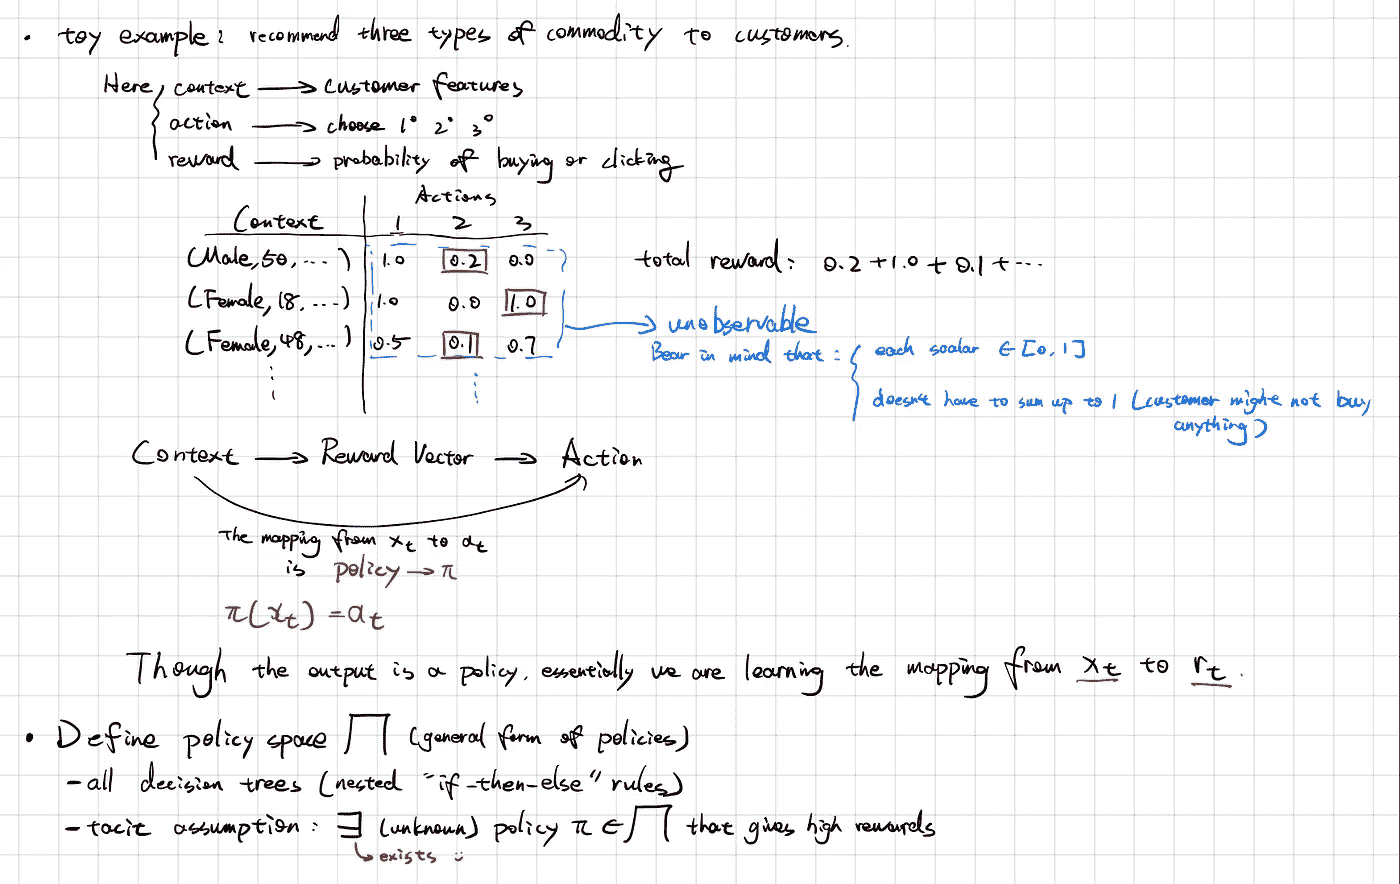 • toy example: recommend three types of commodity to customers.
Here, context → customer features
action → choose 1° 2° 3°
reward → probability of buying or clicking
Actions
Context 1 2 3
(Male, 50, ...) 1.0 0.2 0.0 total reward: 0.2 + 1.0 + 0.1 + ...
(Female, 18, ...) 1.0 0.0 1.0
→ unobservable
(Female, 48, ...) 0.5 0.1 0.7
Bear in mind that: each scalar ∈ [0,1]
doesn't have to sum up to 1 (customer might not buy
anything)
Context → Reward Vector → Action
The mapping from x_t to a_t
is policy → π
π(x_t) = a_t
Though the output is a policy, essentially we are learning the mapping from x_t to r_t.
• Define policy space Π (general form of policies)
- all decision trees (nested "if-then-else" rules)
- tacit assumption: ∃ (unknown) policy π ∈ Π that gives high rewards
↳ exists :)